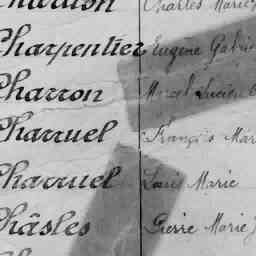 Charles Marie
Charpentier Eugène Gabri
Charron Marcel Lucien
Charruel François Mar
Charruel Louis Marie
Châsles Pierre Marie J